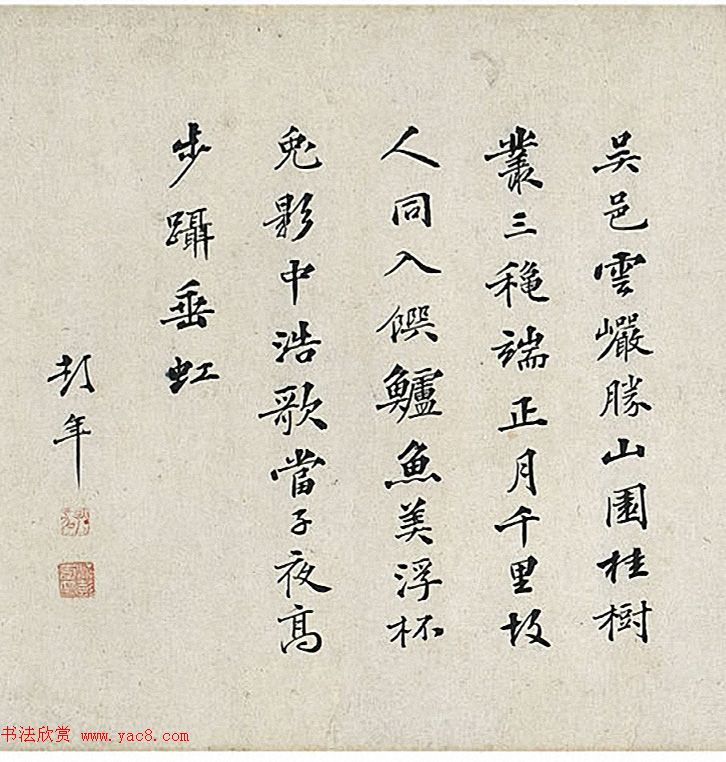 吳邑雲巖勝山園桂樹
叢三穐端正月千里故
人同入饌鱸魚美浮杯
兔影中浩歌當子夜高
步躡垂虹
彭年
书法欣赏 www.yac8.com